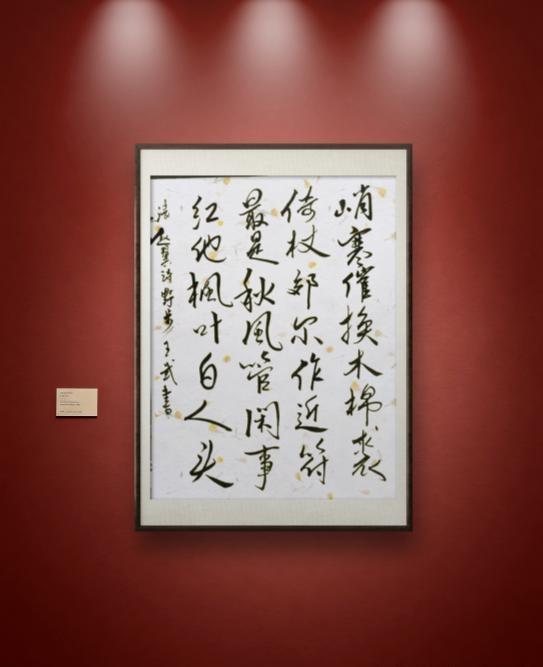 峭寒催换木棉裘
倚杖郊原作近游
最是秋风管闲事
红他枫叶白人头
清赵翼诗野步 武书